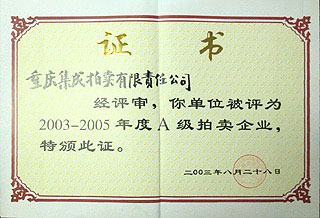 证书
重庆集成拍卖有限责任公司
经评审，你单位被评为
2003-2005 年度 A 级拍卖企业，
特颁此证。
二00三年八月二十八日